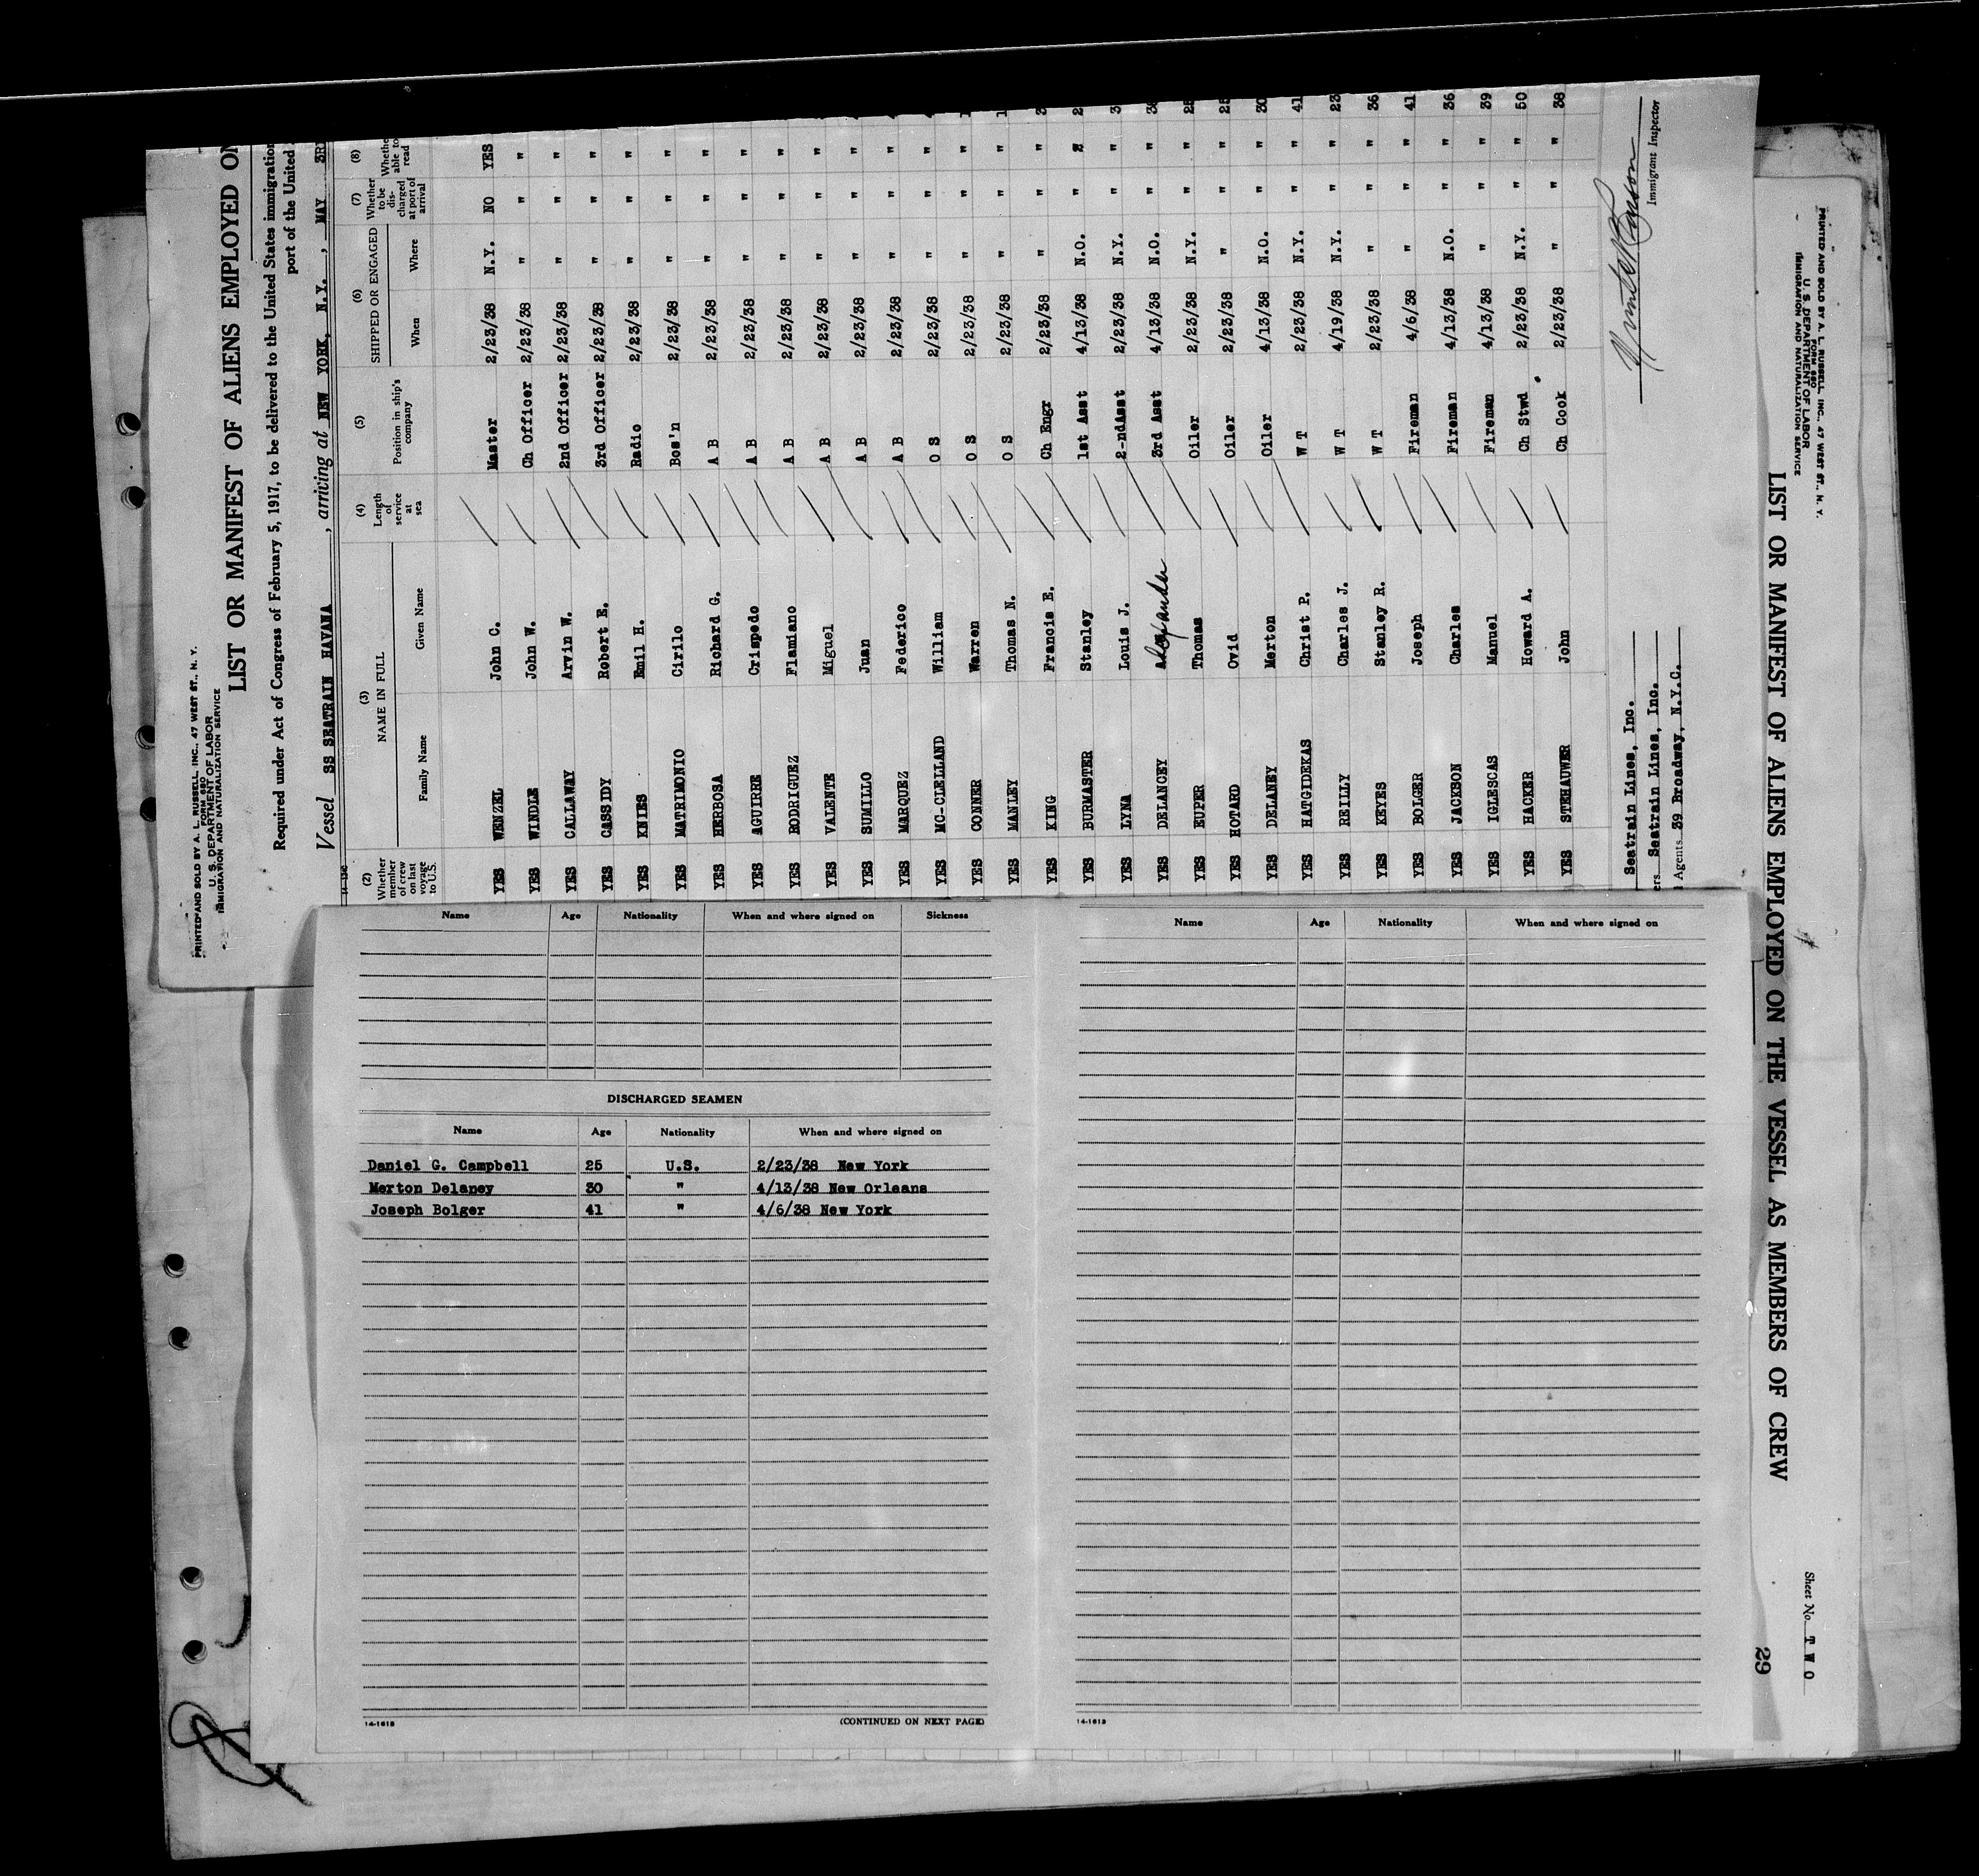 PRINTED AND SOLD BY A. L. RUSSELL INC., 47 WEST ST., N. Y.
FORM 680
U. S. DEPARTMENT OF LABOR
IMMIGRATION AND NATURALIZATION SERVICE
LIST OR MANIFEST OF ALIENS EMPLOYED ON
Required under Act of Congress of February 5, 1917, to be delivered to the United States immigration
port of the United
Vessel SS SEATRAIN HAVANA , arriving at NEW YORK, N.Y. , MAY 3RD
(2) Whether member of crew on last voyage to U.S. (3) NAME IN FULL Family Name Given Name (4) Length of service at sea (5) Position in ship's company (6) SHIPPED OR ENGAGED When Where (7) Whether to be discharged at port of arrival (8) Whether able to read
YES WENZEL John C. Master 2/23/38 N.Y. NO YES
YES WINDLE John W. Ch Officer 2/23/38 " " "
YES CALLAWAY Arvin W. 2nd Officer 2/23/38 " " "
YES CASSIDY Robert E. 3rd Officer 2/23/38 " " "
YES KNIES Emil H. Radio 2/23/38 " " "
YES MATRIMONIO Cirilo Bos'n 2/23/38 " " "
YES HERBOSA Richard G. A B 2/23/38 " " "
YES AGUIRRE Crispedo A B 2/23/38 " " "
YES RODRIGUEZ Flamiano A B 2/23/38 " " "
YES VALENTE Miguel A B 2/23/38 " " "
YES SUMILLO Juan A B 2/23/38 " " "
YES MARQUEZ Federico A B 2/23/38 " " "
YES MC-CLELLAND William O S 2/23/38 " " "
YES CONNER Warren O S 2/23/38 " " "
YES MANLEY Thomas N. O S 2/23/38 " " "
YES KING Francis E. Ch Engr 2/23/38 " " "
YES BURMASTER Stanley 1st Asst 4/13/38 N.O. " "
YES LYNA Louis J. 2-ndAsst 2/23/38 N.Y. " "
YES DELANCEY Alexander 3rd Asst 4/13/38 N.O. " "
YES EUPER Thomas Oiler 2/23/38 N.Y. " " 25
YES HOTARD Ovid Oiler 2/23/38 " " " 25
YES DELANEY Merton Oiler 4/13/38 N.O. " " 30
YES HATGIDEKAS Christ P. W T 2/23/38 N.Y. " " 41
YES REILLY Charles J. W T 4/19/38 N.Y. " " 23
YES KEYES Stanley R. W T 2/23/38 " " " 36
YES BOLGER Joseph Fireman 4/6/38 " " " 41
YES JACKSON Charles Fireman 4/13/38 N.O. " " 36
YES IGLESCAS Manuel Fireman 4/13/38 " " " 39
YES HACKER Howard A. Ch Stwd 2/23/38 N.Y. " " 50
YES STEHAUWER John Ch Cook 2/23/38 " " " 38
Seatrain Lines, Inc.
ers Seatrain Lines, Inc.
Agents 39 Broadway, N.Y.C.
Immigrant Inspector
Name Age Nationality When and where signed on Sickness
DISCHARGED SEAMEN
Name Age Nationality When and where signed on
Daniel G. Campbell 25 U.S. 2/23/38 New York
Merton Delaney 30 " 4/13/38 New Orleans
Joseph Bolger 41 " 4/6/38 New York
14-1613 (CONTINUED ON NEXT PAGE)
Name Age Nationality When and where signed on
14-1613
PRINTED AND SOLD BY A. L. RUSSELL INC., 47 WEST ST., N. Y.
FORM 680
U. S. DEPARTMENT OF LABOR
IMMIGRATION AND NATURALIZATION SERVICE
LIST OR MANIFEST OF ALIENS EMPLOYED ON THE VESSEL AS MEMBERS OF CREW
Sheet No. T W O
29